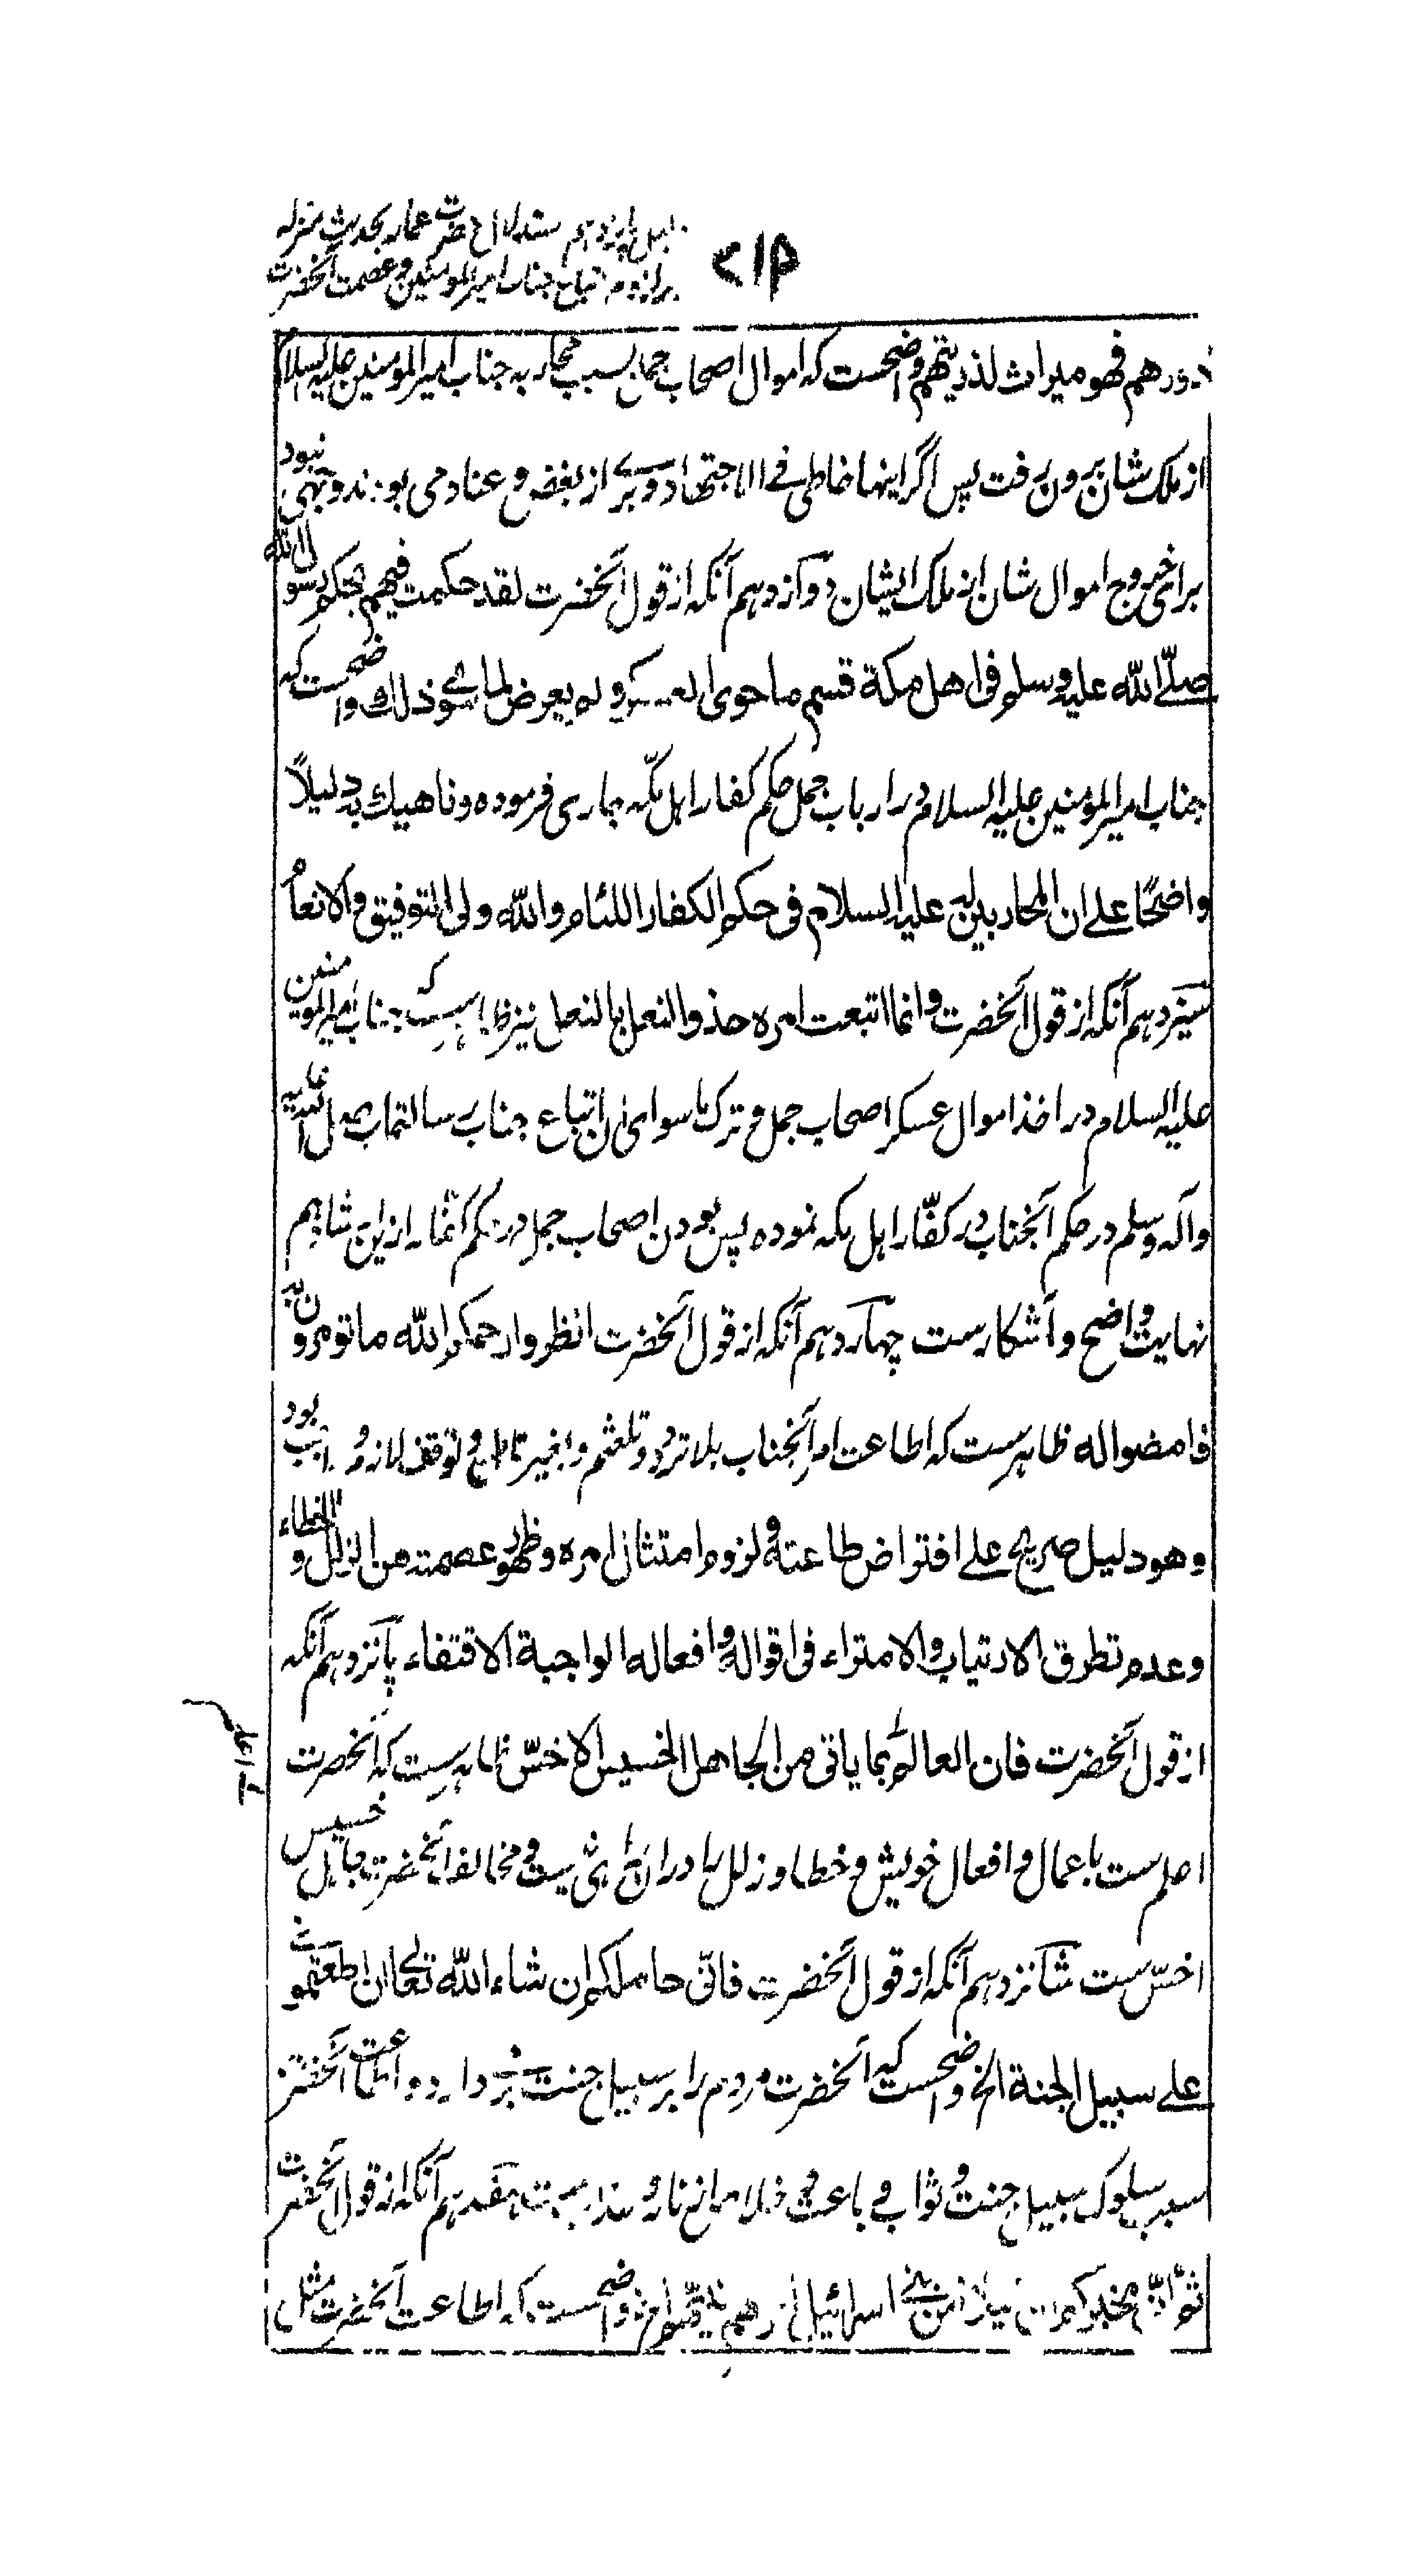 دلیل پانزدهم استدلال حضرت عمار بحدیث منزله
۲۱۵
بر لزوم اتباع جناب امیرالمومنین و عصمت آنحضرت
دورهم فهو میراث لذریتهم واضحست که اموال اصحاب جمل بسبب محاربه جناب امیرالمومنین علیه السلام
از ملک شان بیرون رفت پس اگر اینها خاطی فی الاجتهاد و بری از بغض و عناد می بودند وجهی نبود
برای خروج اموال شان از ملک ایشان دوازدهم آنکه از قول آنحضرت لقد حکمت فیهم بحکم رسول الله
صلّی الله علیه وسلم فی اهل مکة قسم ما حوی العسکر ولم یعرض لما سوی ذلك واضحست که
جناب امیرالمومنین علیه السلام در ارباب جمل حکم کفار اهل مکّه جاری فرموده وناهیك به دلیلاً
واضحًا علی ان المحاربین له علیه السلام فی حکم الکفار اللئام والله ولی التوفیق والانعام
سیزدهم آنکه از قول آنحضرت وانما اتبعت امره حذو النعل بالنعل نیز ظاهرست که جناب امیرالمومنین
علیه السلام در اخذ اموال عسکر اصحاب جمل و ترک ماسوای آن اتباع جناب رسالتمآب صلی الله علیه
وآله وسلم در حکم آنجناب در کفّار اهل مکه نموده پس بودن اصحاب جمل در حکم کفار ازین شاهم
نهایت واضح و آشکارست چهاردهم آنکه از قول آنحضرت انظروا رحمکم الله ما تومرون به
فامضوا له ظاهرست که اطاعت امر آنجناب بلا تردد و تلعثم و بغیر توقف لازم و واجب بود
وهو دلیل صریح علی افتراض طاعته ولزوم امتثال امره وظهور عصمته من الزلل والخطاء
وعدم تطرق الارتیاب والامتراء فی اقواله وافعاله الواجبة الاقتفاء پانزدهم آنکه
از قول آنحضرت فان العالم بما یاتی من الجاهل الخسیس الاخسّ ظاهرست که آنحضرت
اعلم ست باعمال و افعال خویش و خطا و زلل را در ان راهی نیست و مخالف آنحضرت جاهل خسیس
اخسّ ست شانزدهم آنکه از قول آنحضرت فانّی حاملکم ان شاء الله تعالی ان اطعتمونی
علی سبیل الجنة الخ واضحست که آنحضرت مردم را بر سبیل جنت بر دارد و اطاعت آنحضرت
سبب سلوک سبیل جنت و ثواب و باعث خلاص از نار و عذاب ست هفدهم آنکه از قول آنحضرت
ثم انی مخبرکم من بنی اسرائیل واضحست که اطاعت آنحضرت مثل